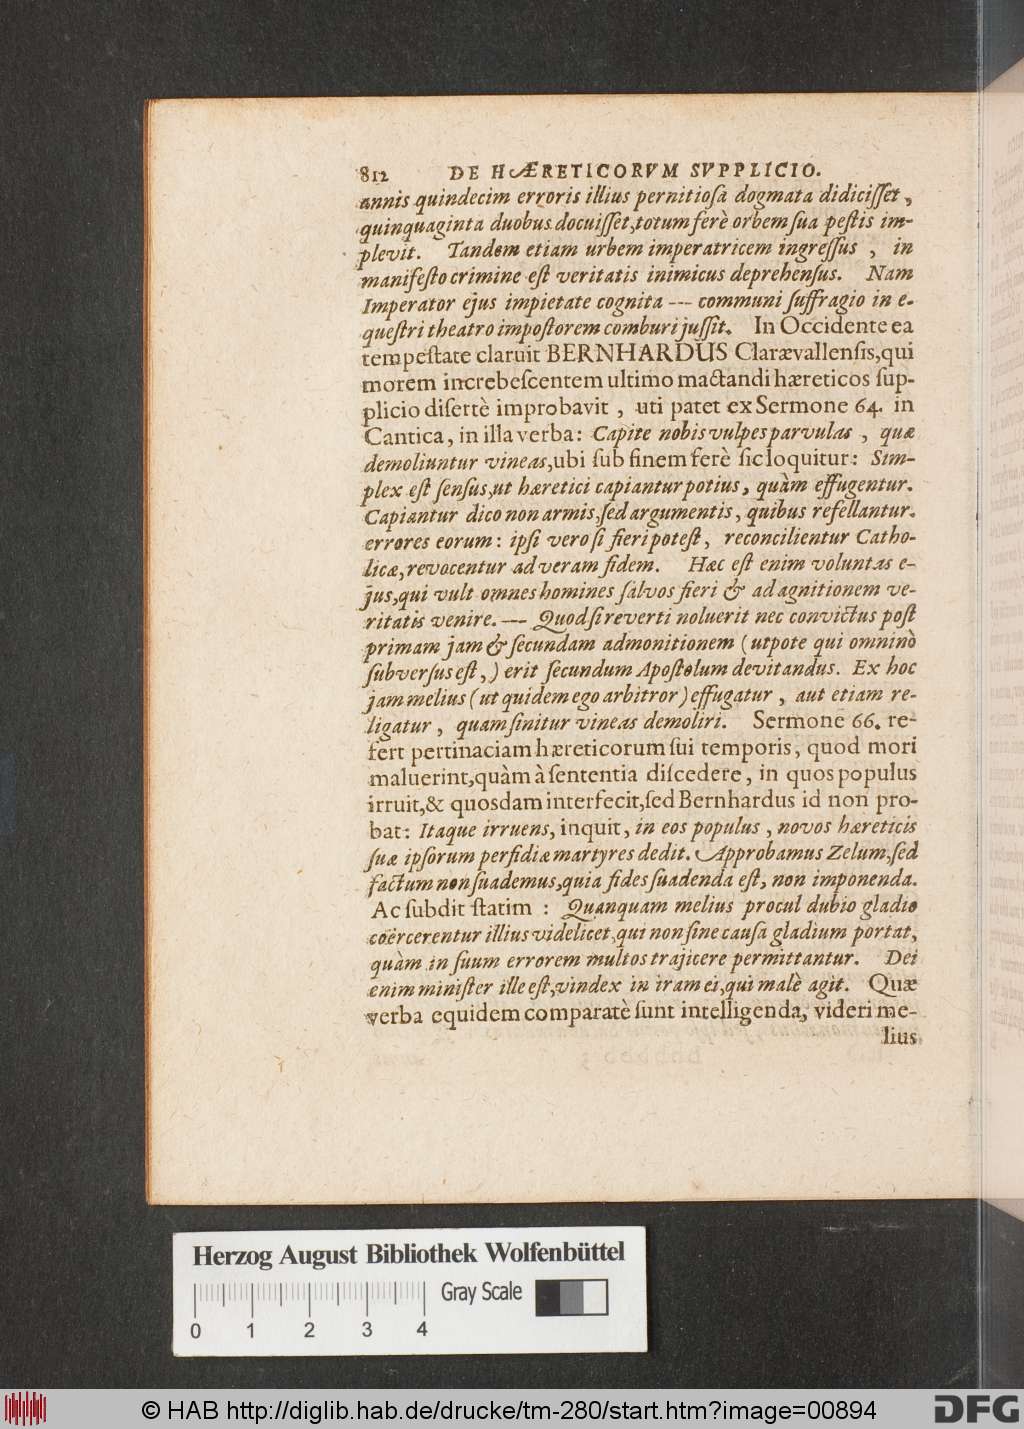 812 DE HÆRETICORVM SVPPLICIO.
annis quindecim erroris illius pernitiosa dogmata didicisset,
quinquaginta duobus docuisset, totum ferè orbem sua pestis im-
plevit. Tandem etiam urbem imperatricem ingressus, in
manifesto crimine est veritatis inimicus deprehensus. Nam
Imperator ejus impietate cognita --- communi suffragio in e-
questri theatro impostorem comburi jussit. In Occidente ea
tempestate claruit BERNHARDUS Clarævallensis, qui
morem increbescentem ultimo mactandi hæreticos sup-
plicio disertè improbavit, uti patet ex Sermone 64. in
Cantica, in illa verba: Capite nobis vulpes parvulas, quæ
demoliuntur vineas, ubi sub finem ferè sic loquitur: Sim-
plex est sensus, ut hæretici capiantur potius, quàm effugentur.
Capiantur dico non armis, sed argumentis, quibus refellantur.
errores eorum: ipsi vero si fieri potest, reconcilientur Catho-
licæ, revocentur ad veram fidem. Hæc est enim voluntas e-
jus, qui vult omnes homines salvos fieri & ad agnitionem ve-
ritatis venire. --- Quod si reverti noluerit nec convictus post
primam jam & secundam admonitionem (utpote qui omninò
subversus est,) erit secundum Apostolum devitandus. Ex hoc
jam melius (ut quidem ego arbitror) effugatur, aut etiam re-
ligatur, quam sinitur vineas demoliri. Sermone 66. re-
fert pertinaciam hæreticorum sui temporis, quod mori
maluerint, quàm à sententia discedere, in quos populus
irruit, & quosdam interfecit, sed Bernhardus id non pro-
bat: Itaque irruens, inquit, in eos populus, novos hæreticis
suæ ipsorum perfidiæ martyres dedit. Approbamus Zelum, sed
factum non suademus, quia fides suadenda est, non imponenda.
Ac subdit statim: Quanquam melius procul dubio gladio
coërcerentur illius videlicet, qui non sine causa gladium portat,
quàm in suum errorem multos trajicere permittantur. Dei
enim minister ille est, vindex in iram ei, qui malè agit. Quæ
verba equidem comparatè sunt intelligenda, videri me-
lius
Herzog August Bibliothek Wolfenbüttel
Gray Scale
0 1 2 3 4
© HAB http://diglib.hab.de/drucke/tm-280/start.htm?image=00894
DFG